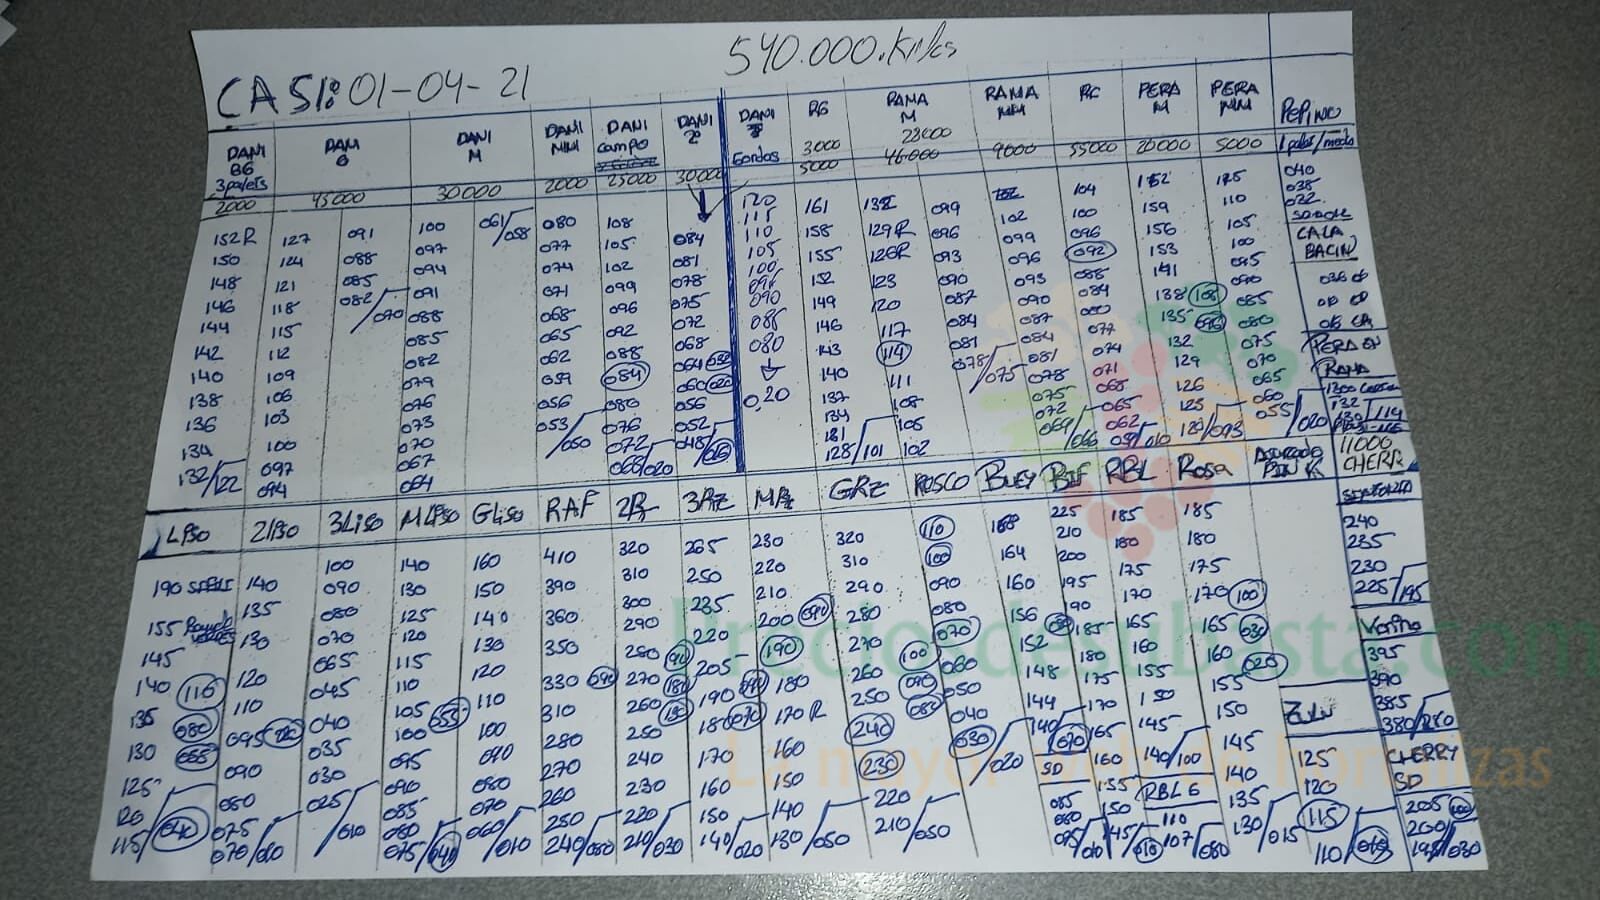 540.000.Kilos
CASI: 01-04-21
DANI GG 3 palets 2000
DANI G 45000
DANI M 30000
DANI MINI 2000
DANI campo 25000
DANI 2 30000
DANI Gordos
RG 3000 5000
RAMA M 23000 46.000
RAMA MM 9000
RC 55000
PERA M 20000
PERA MM 5000
PEPINO 1 palet/medio
152R 127 091 100 061/058 080 108 084 120 161 132 099 102 104 162 125 040
150 124 088 097 077 105 081 115 158 129R 096 102 100 159 110 038
148 121 085 094 074 102 078 110 155 126R 093 099 096 156 105 032
146 118 082/070 091 071 099 075 105 152 123 090 096 092 153 100
144 115 088 068 096 072 100 149 120 087 093 088 141 095
142 112 085 065 092 068 095 146 117 084 090 084 138 108 090
140 109 082 062 088 064 032 090 143 114 081 087 080 135 096 085
138 106 079 059 084 060 020 085 140 111 078/075 084 077 132 080
136 103 076 056 080 056 080 137 108 081 074 129 075
134 100 073 053/050 076 052 0,20 134 105 078 071 126 070
132/122 097 070 072 048/020 131 102 075 068 125 065
094 067 068/020 128/101 072 065 120/093 060
064 069/066 062 055/020
CALA
BACIN
PERA EN
RAMA
132
130/114
11000
CHERR
LISO 2LISO 3Liso MLISO GLiso RAF 2R 3Rz MRz GRz ROSCO BUEY BIF RBL Rosa
190 140 100 140 160 410 320 265 230 320 110 168 225 185 185 240
155 135 090 130 150 390 310 250 220 310 100 164 210 180 180 235
145 130 080 125 140 360 300 235 210 290 090 160 200 175 175 230
140 116 120 070 120 130 350 290 220 200 090 280 080 156 195 170 170 100 225/195
135 080 110 065 115 120 330 090 280 205 190 270 070 152 190 165 165 030
130 095 045 110 110 310 270 190 180 260 100 060 148 185 160 160 020
125 090 040 105 055 100 280 260 180 070 170R 250 090 050 144 180 155 155
120 080 035 100 090 270 250 170 160 240 040 140/070 175 150 150
115/040 075 030 095 080 260 240 160 150 230 030/020 170 145 145
070/020 025/010 090 070 250 230 150 140 220 165 140/100 140
085 060/010 240/080 220 140/020 130/050 210/050 160 135
080 210/030 155 130/015
075/040 150
145/010
SD
085
080
075/010
RBL G
110
107/080
Zulu
125
120
115
110/040
Verino
395
390
385
380/280
CHERRY
SD
205 100
200
195/030
Preciosdesubasta.com
La mayor web de hortalizas